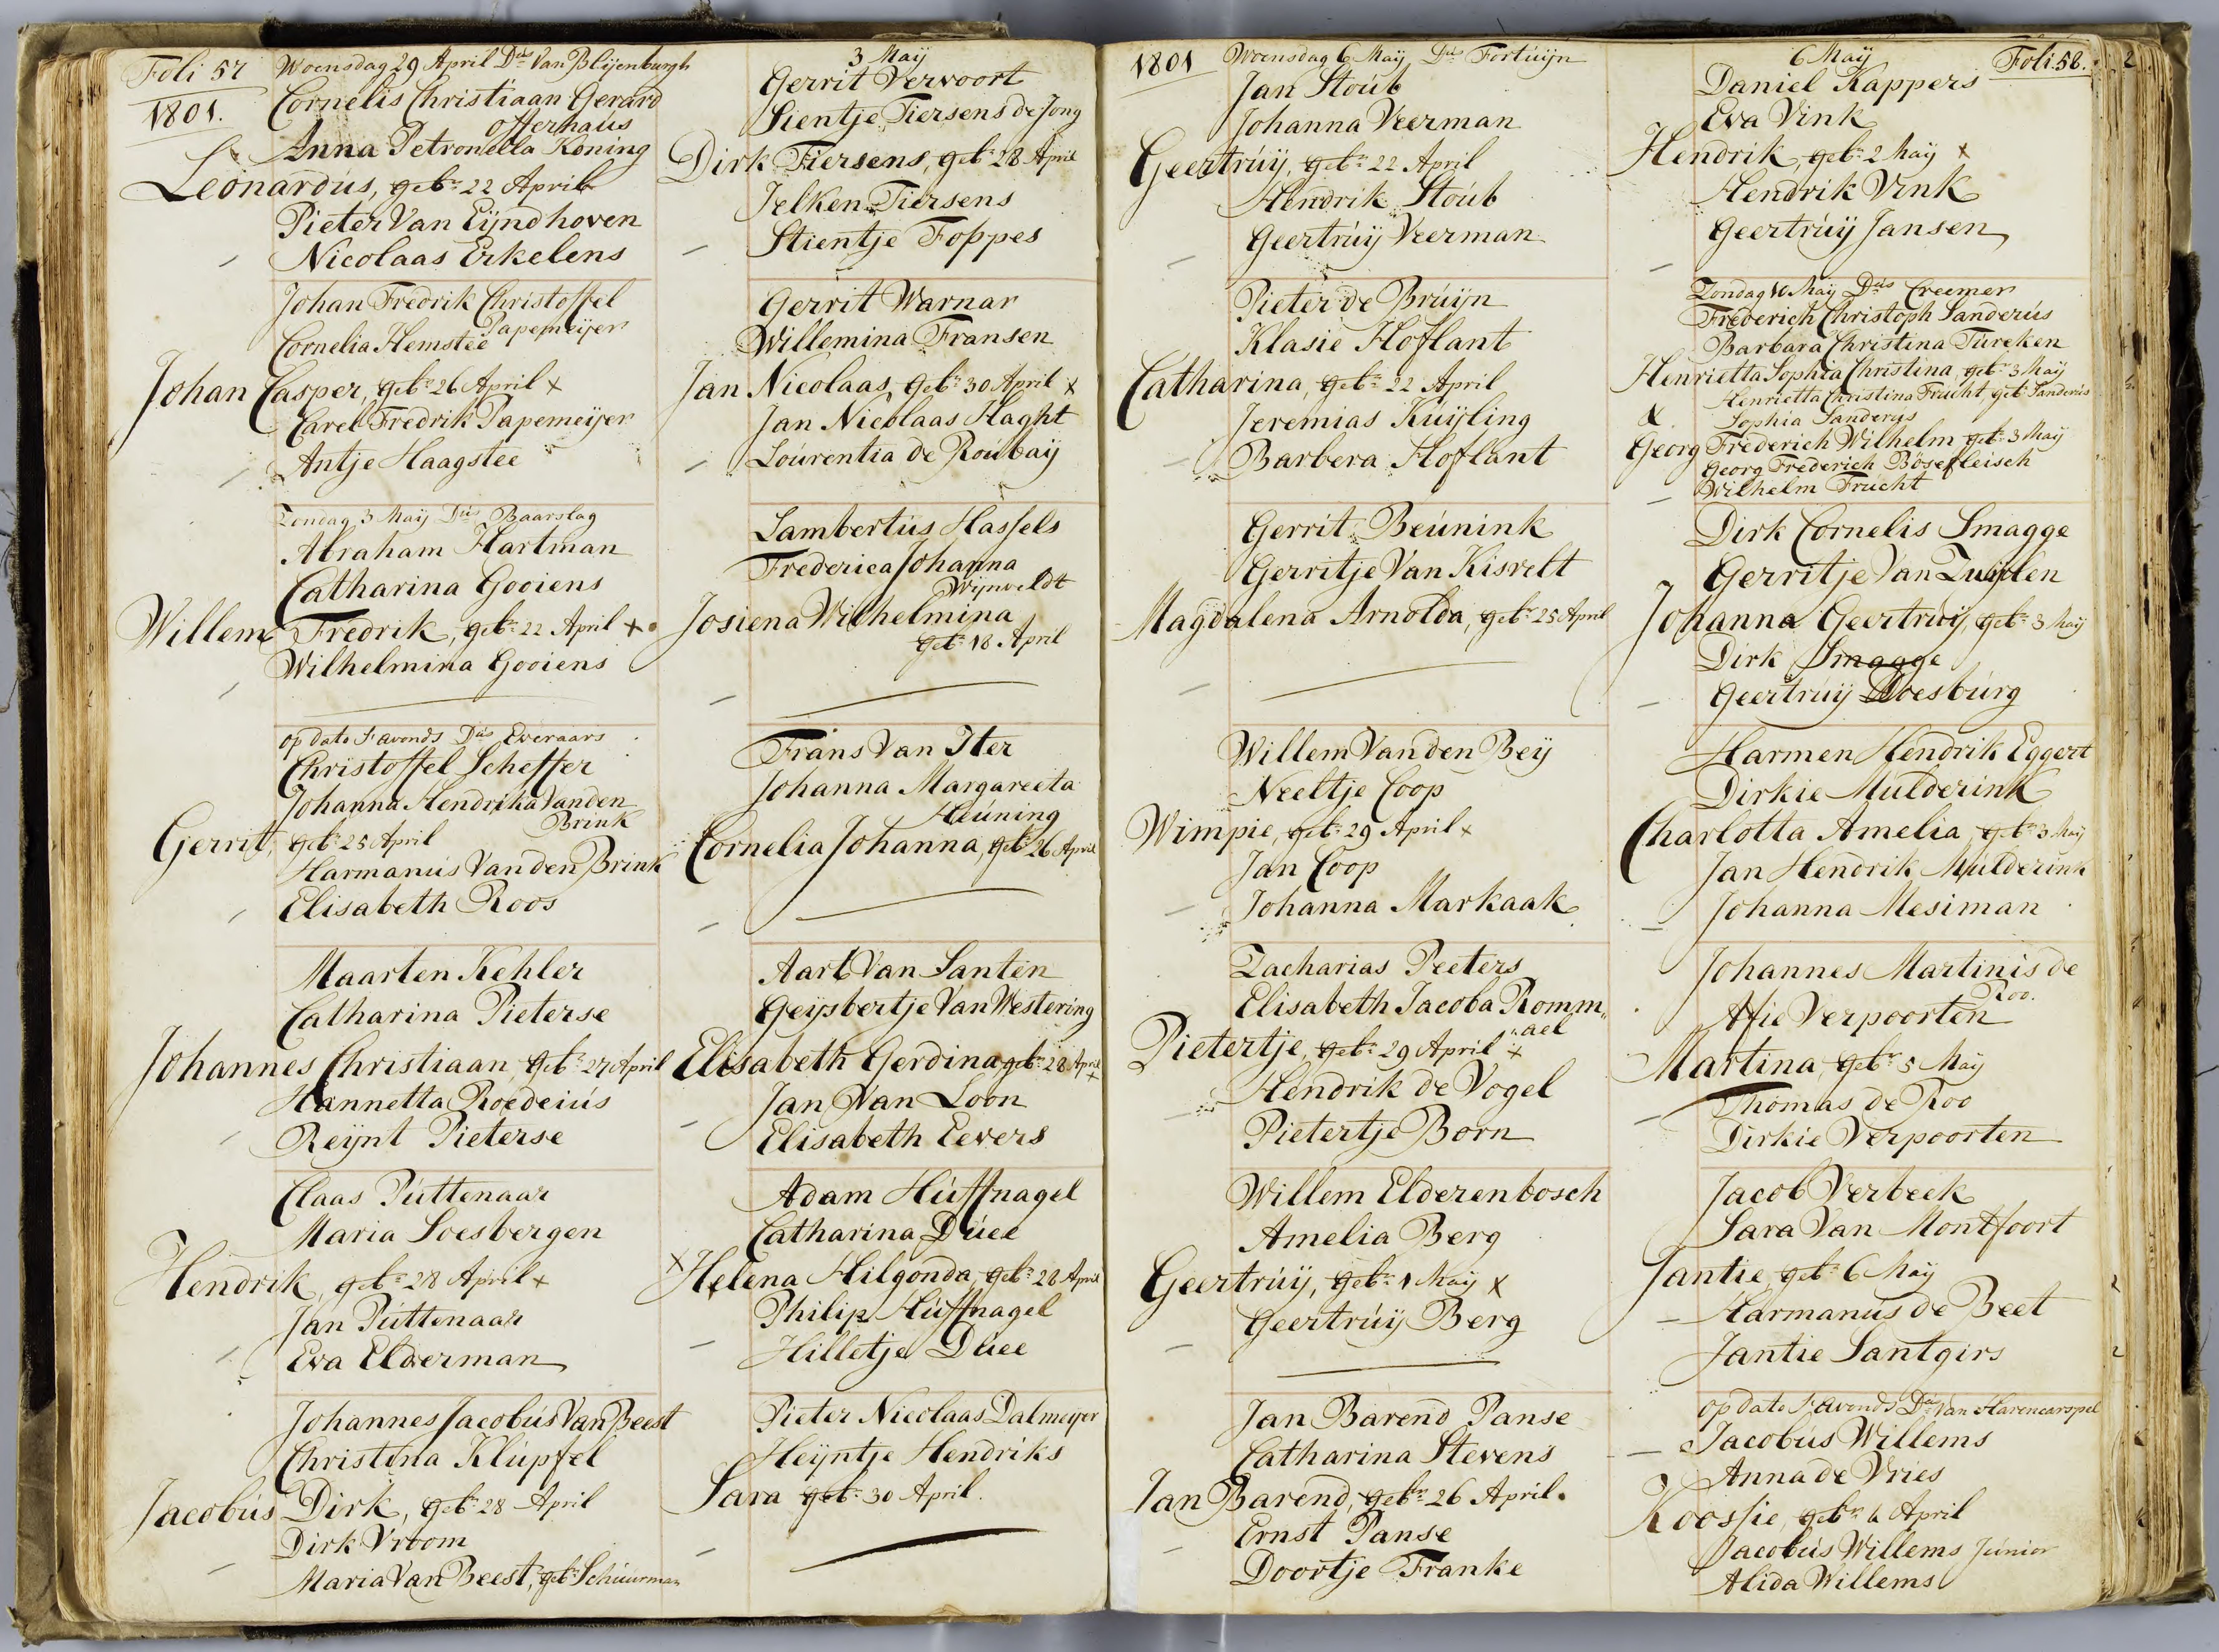 Foli 57
1801.
Woensdag 29 April Ds Van Blijenburgh
Cornelis Christiaan Gerard
Offerhaús
Anna Petronella Koning
Leonardús, gebr 22 April
Pieter Van Eijndhoven
Nicolaas Erkelens
Johan Fredrik Christoffel
Papemeijer
Cornelia Hemstee
Johan Casper, gebr 26 April x
Carel Fredrik Papemeijer
Antje Haagstee
Zondag 3 Maij Ds Baarslag
Abraham Hartman
Catharina Gooiens
Willem Fredrik, gebr 22 April x
Wilhelmina Gooiens
op dato s'avonds Ds Everaars
Christoffel Scheffer
Johanna Hendrika Vanden
Brink
Gerrit, gebr 25 April
Harmanús Van den Brink
Elisabeth Roos
Maarten Kehler
Catharina Pieterse
Johannes Christiaan, gebr 27 April
Hannetta Roedeiús
Reijnt Pieterse
Claas Púttenaar
Maria Soesbergen
Hendrik, gebr 28 April x
Jan Púttenaar
Eva Elderman
Johannes Jacobús Van Beest
Christina Klúpfel
Jacobús Dirk, gebr 28 April
Dirk Vroom
Maria Van Beest, gebr Schúurman
3 Maij
Gerrit Vervoort
Sientje Tiersens de Jong
Dirk Tiersens, gebr 28 April
Jelken Tiersens
Stientje Foppes
Gerrit Warnar
Willemina Fransen
Jan Nicolaas, gebr 30 April x
Jan Nicolaas Haght
Lourentia de Roúbaij
Lambertús Hassels
Frederica Johanna
Wijnveldt
Josiena Wilhelmina
gebr 18 April
Frans Van Iter
Johanna Margareeta
Heúning
Cornelia Johanna, gebr 26 April
Aart Van Santen
Geijsbertje Van Westering
Elisabeth Gerdina gebr 28 April
x
Jan Van Loon
Elisabeth Eevers
Adam Húffnagel
Catharina Dúee
x Helena Hilgonda, gebr 28 April
Philip Húffnagel
Hilletje Dúee
Pieter Nicolaas Dalmeijer
Heijntje Hendriks
Sara gebr 30 April.
1801
Woensdag 6 Maij Ds Fortúijn
Jan Stoúb
Johanna Veerman
Geertrúij, gebr 22 April
Hendrik Stoúb
Geertrúij Veerman
Pieter de Brúijn
Klasie Hoflant
Catharina, gebr 22 April
Jeremias Kúijling
Barbera Hoflant
Gerrit Beúnink
Gerritje Van Kisvelt
Magdalena Arnolda, gebr 25 April
Willem Van den Beij
Neeltje Coop
Wimpie, gebr 29 April x
Jan Coop
Johanna Markaak
Zacharias Peeters
Elisabeth Jacoba Romm„
„ael
Pietertje, gebr 29 April x
Hendrik de Vogel
Pietertje Born
Willem Elderenbosch
Amelia Berg
Geertrúij, gebr 1 Maij x
Geertrúij Berg
Jan Barend Panse
Catharina Stevens
Jan Barend, gebr 26 April.
Ernst Panse
Doortje Franke
6 Maij
Foli 58.
Daniel Kappers
Eva Vink
Hendrik, gebr 2 Maij x
Hendrik Vink
Geertrúij Jansen
Zondag 10 Maij Ds Creemer
Frederich Christoph Sanderús
Barbara Christina Túrcken
Henrietta Sophia Christina, gebr 3 Maij
Henrietta Christina Frúcht, gebr Sanderús
&
Sophia Sanderús
Georg Frederich Wilhelm gebr 3 Maij
Georg Frederich Bösefleisch
Wilhelm Frúcht
Dirk Cornelis Smagge
Gerritje Van Zuijlen
Johanna Geertruij, gebr 3 Maij
Dirk Smagge
Geertrúij Doesbúrg
Harmen Hendrik Eggert
Dirkie Mulderink
Charlotta Amelia, gebr 3 Maij
Jan Hendrik Múlderink
Johanna Mesiman
Johannes Martinis de
Roo.
Afie Verpoorten
Martina, gebr 5 Maij
Thomas de Roo
Dirkie Verpoorten
Jacob Verbeek
Sara Van Montfoort
Jantie, gebr 6 Maij
Harmanús de Beet
Jantie Santgirs
op dato s'avonds Ds Van Harencarspel
Jacobús Willems
Anna de Vries
Koossie, gebr 6 April
Jacobús Willems Júnior
Alida Willems